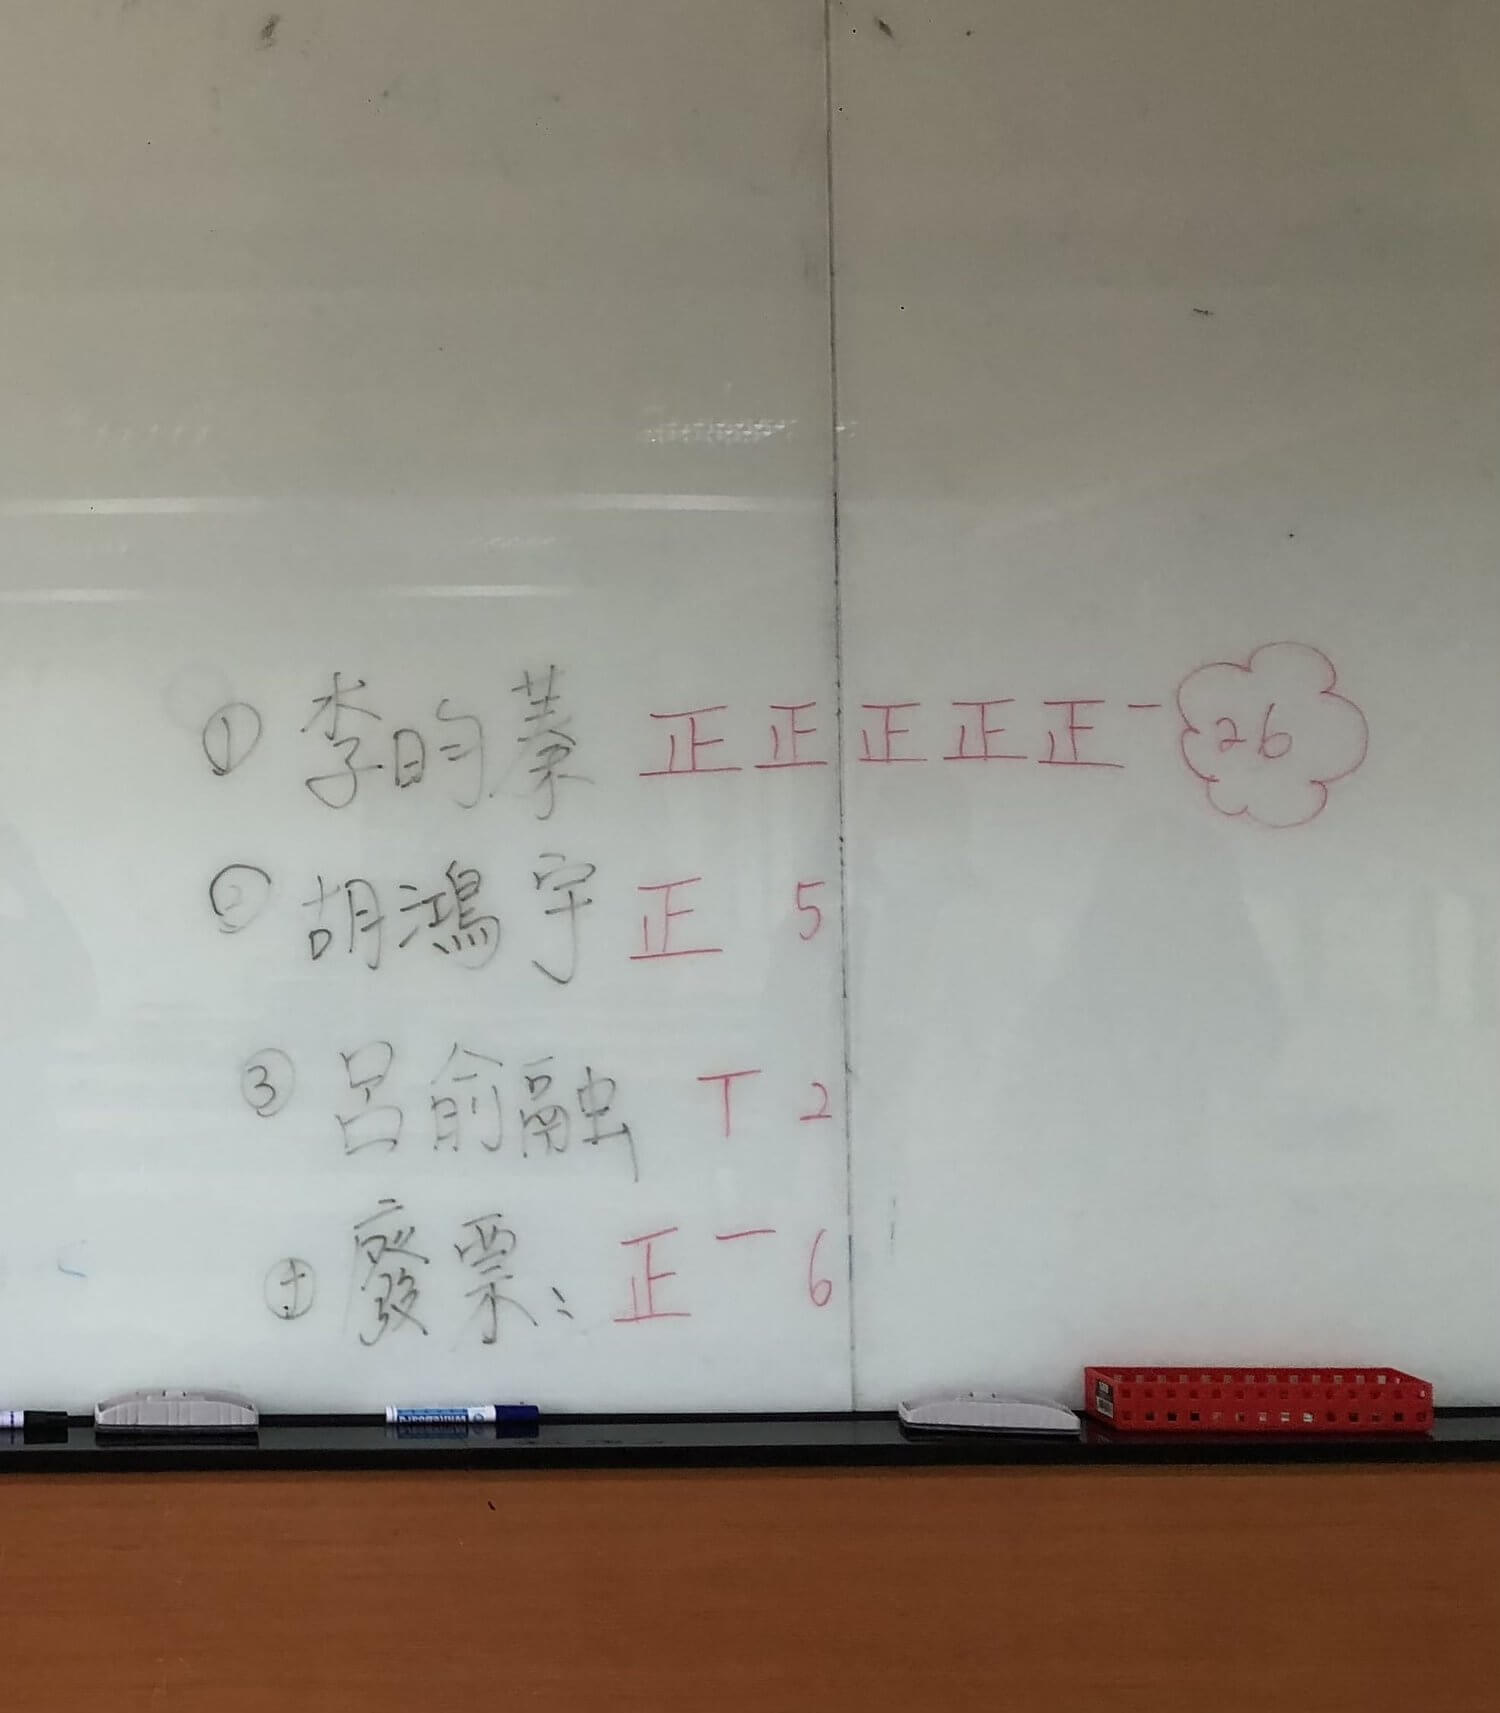 ① 李昀蓁 正正正正正一 26
② 胡鴻宇 正 5
③ 呂俞融 T 2
廢票: 正一 6